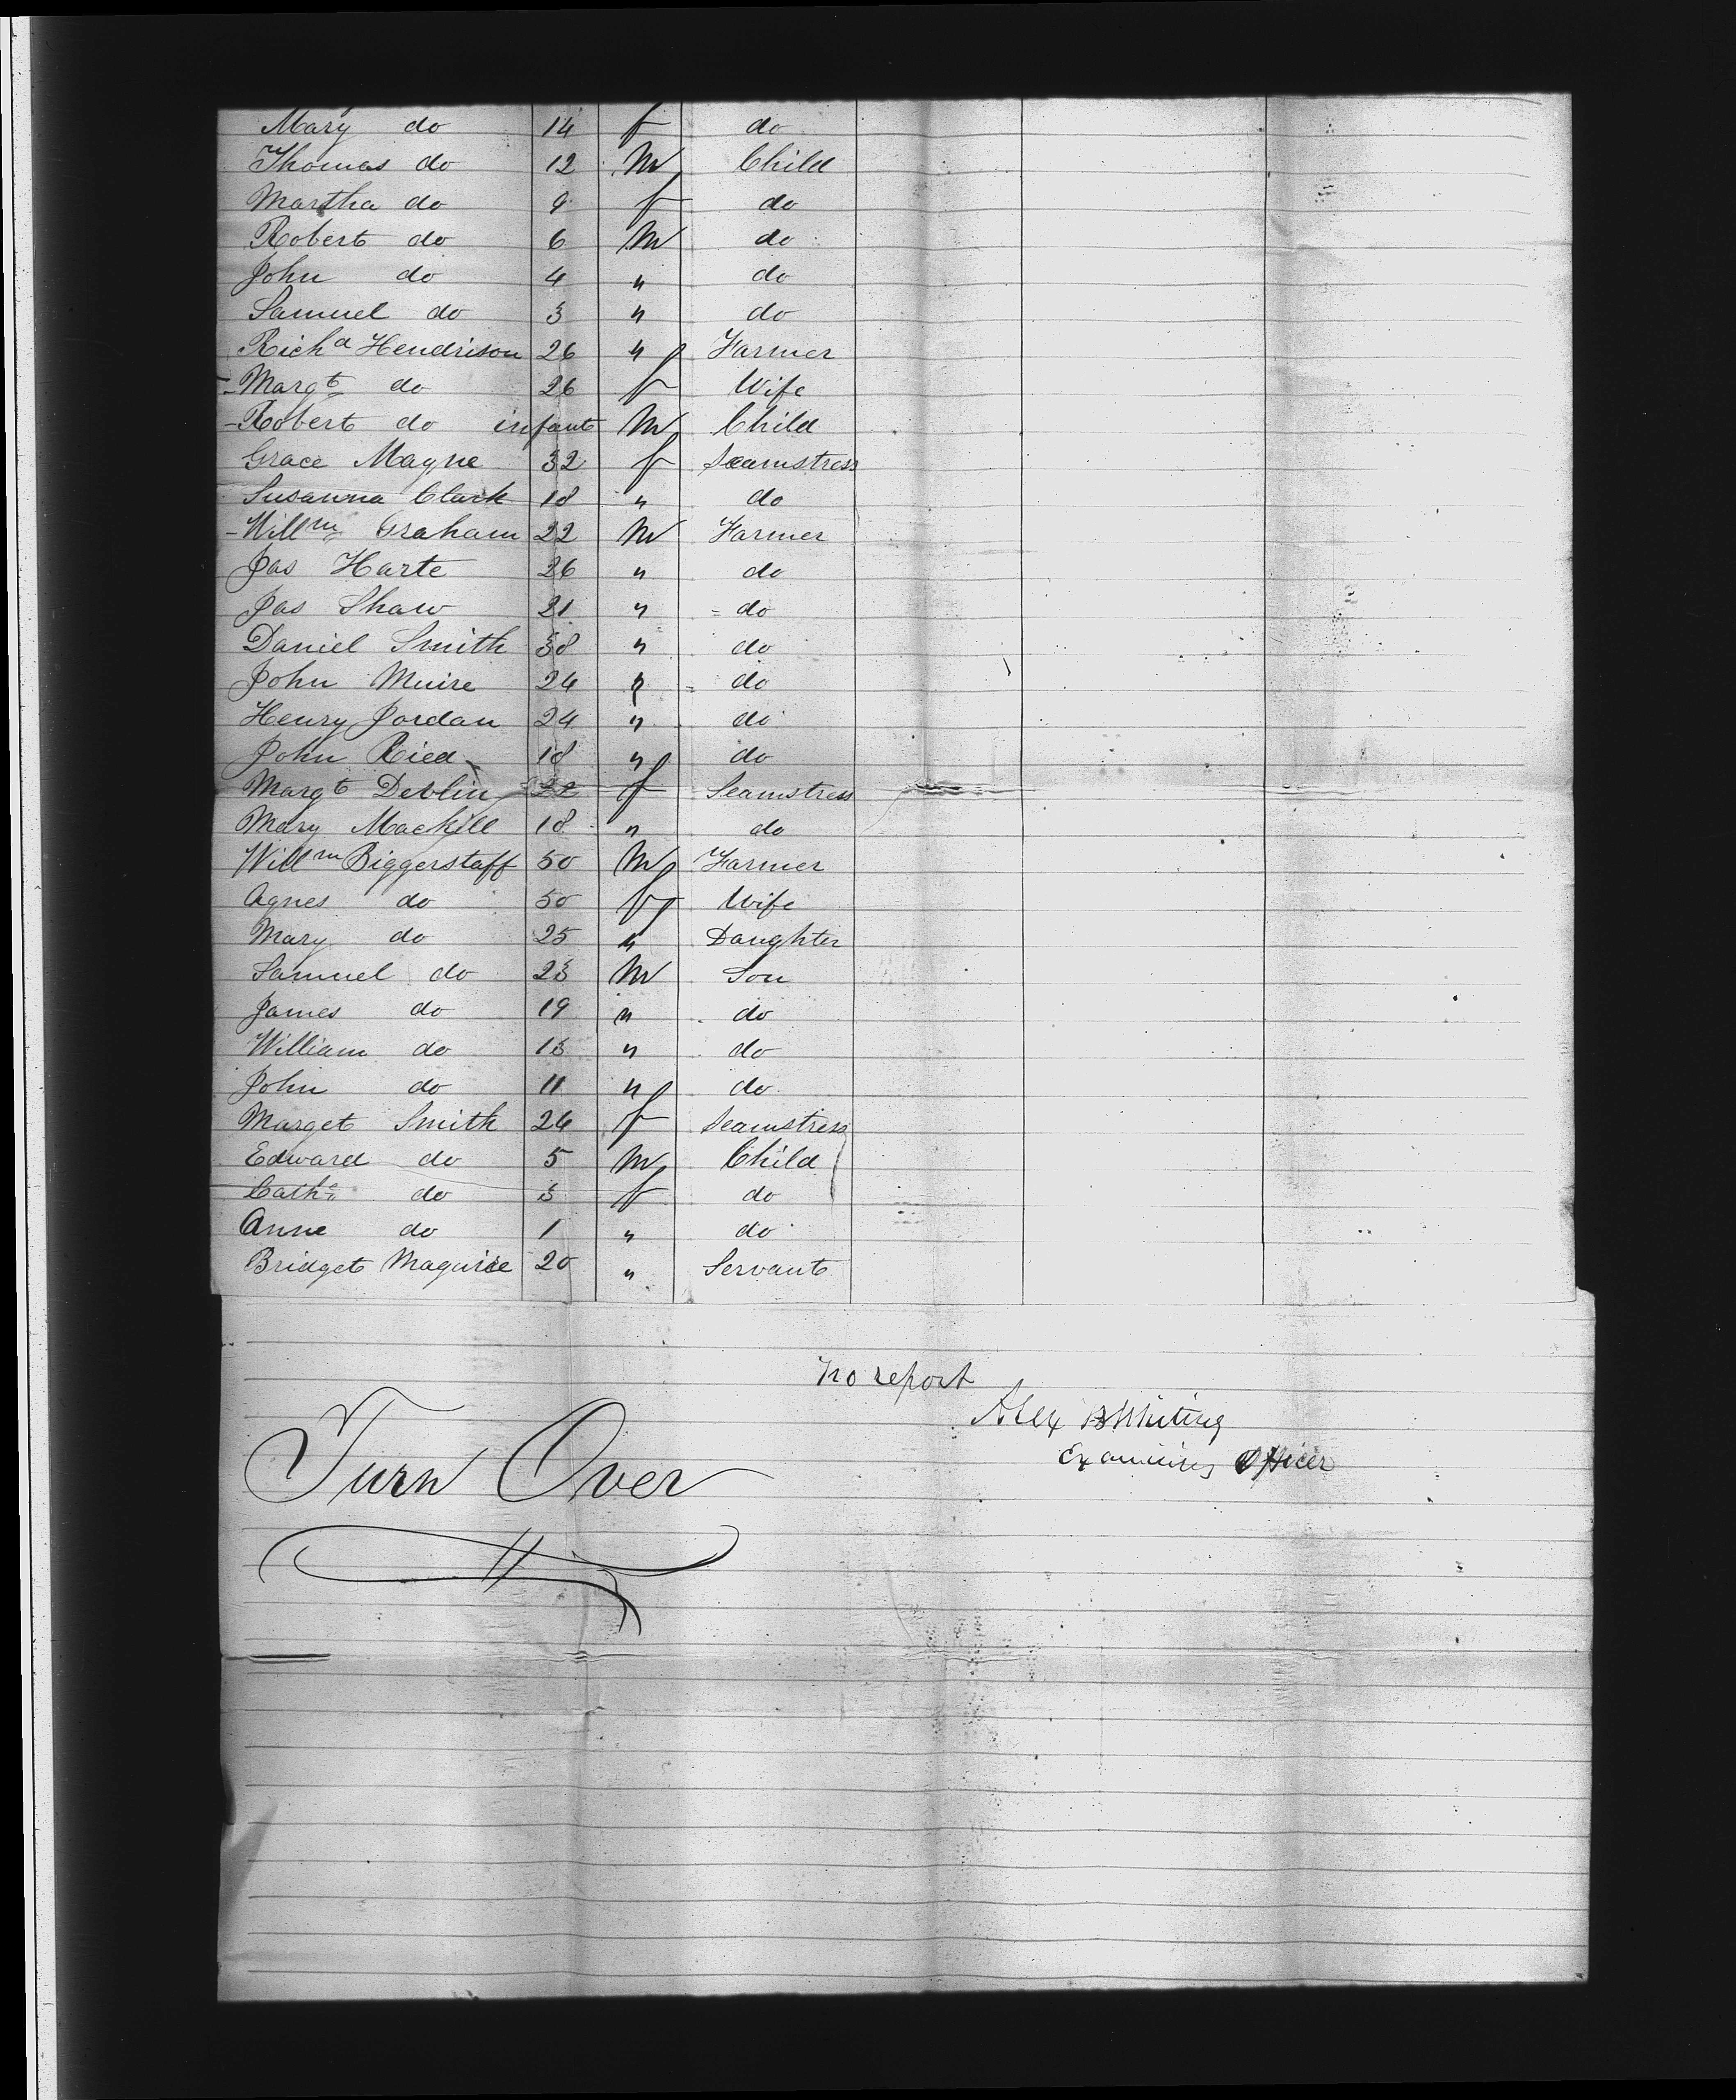 Mary do 14 f do
Thomas do 12 M Child
Martha do 9 f do
Robert do 6 M do
John do 4 " do
Samuel do 3 " do
Richd Hendrison 26 " Farmer
Margt do 26 f Wife
Robert do infant M Child
Grace Magne 32 f Seamstress
Susanna Clark 18 " do
Willm Graham 22 M Farmer
Jas Harte 26 " do
Jas Shaw 21 " do
Daniel Smith 38 " do
John Muire 24 " do
Henry Jordan 24 " do
John Ried 18 " do
Margt Devlin 22 f Seamstress
Mary Mackill 18 " do
Willm Biggerstaff 50 M Farmer
Agnes do 50 f Wife
Mary do 25 " Daughter
Samuel do 23 M Son
James do 19 " do
William do 13 " do
John do 11 " do
Marget Smith 26 f Seamstress
Edward do 5 M Child
Cathe do 3 f do
Anne do 1 " do
Bridget Maguire 20 " Servant
No report
Alex B Whiting
Examining Officer
Turn Over